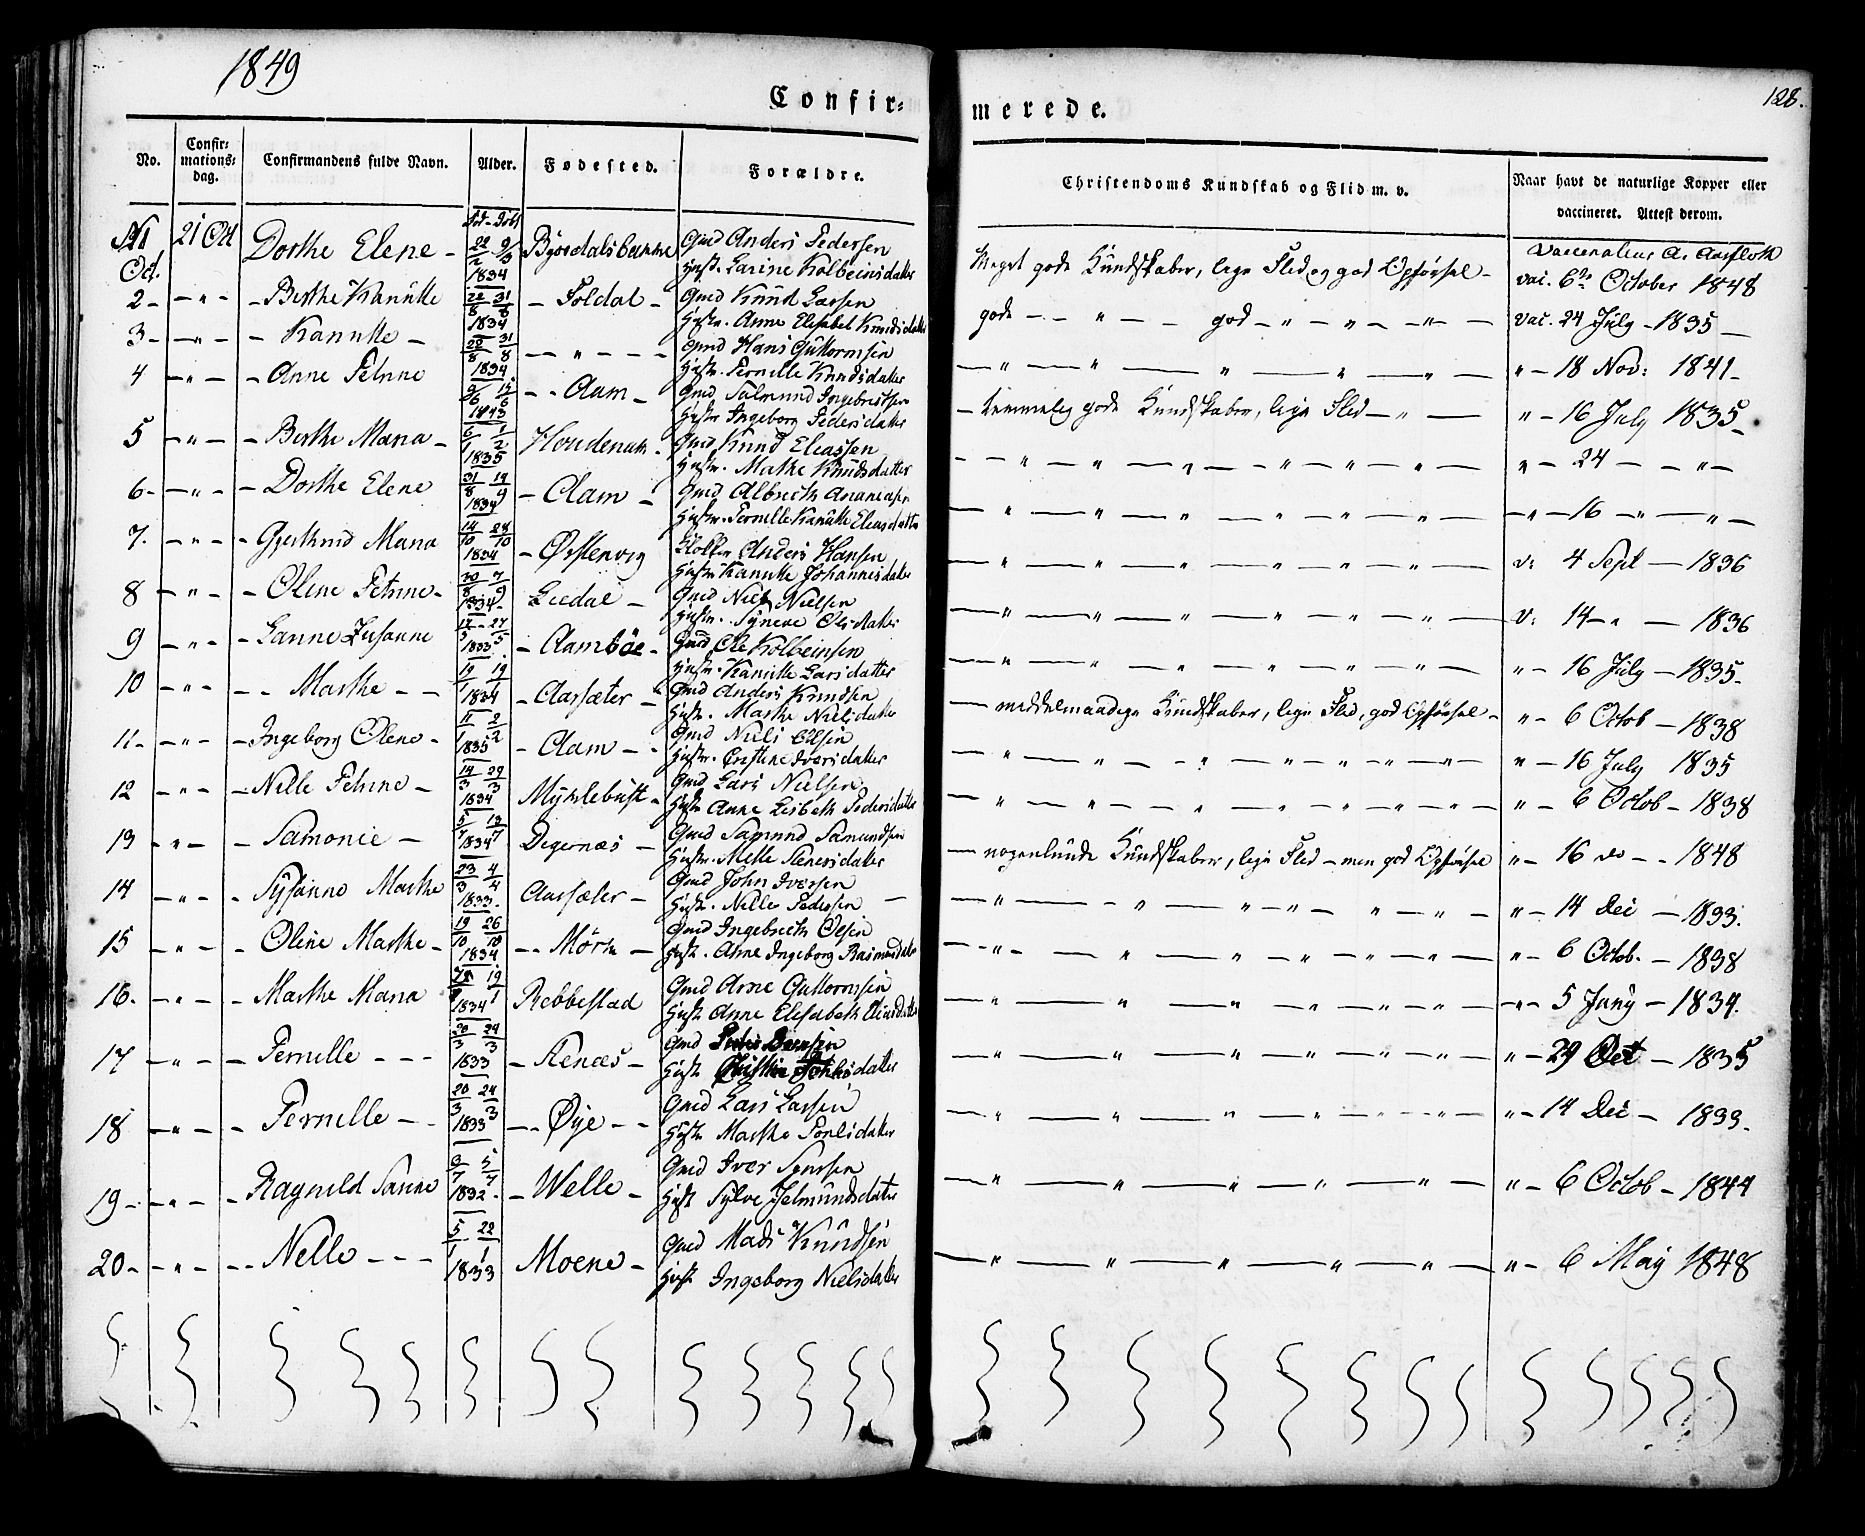 1849
128.
Confir-
merede.
No.
Confir-
mations-
dag.
Confirmandens fulde Navn.
Alder.
Fødested.
Forældre.
Christendoms Kundskab og Flid m. v.
Naar havt de naturlige Kopper eller
vaccineret. Attest derom.
Oct.
21 Oct Dorthe Elene - 1834 Gmd Anders Pedersen
Hust. Karine Kolbeinsdatter
Meget gode Kundskaber, lige Flid og god Opførsel - vac. 6te October 1848
2 - - " - - Berthe Kanutte 1834 - Foldal - Gmd Knud Larsen
Hustr. Anne Elisabet Knudsdatter
gode - - " - - god - " - " - " - vac. 24 July - 1835 -
3 - - " - - Kanutte - 1834 - - " - - - Gmd Hans Guttormsen
Hustr. Pernille Knudsdatter
" - 18 Nov: 1841 -
4 - " - - Anne Petrine - - Aam - Gmd Salmund Ingebretsen
Hustr Ingeborg Pedersdatter
- temmelig gode Kundskaber, lige Flid - " - " - 16 July 1835 -
5 - " - - Berthe Maria - 1835 Gmd Knud Eliassen
Hustr. Marthe Knudsdatter
" - 24 - - " -
6 - - " - - Dorthe Elene 1834 - Aam - Gmd Albreth
Hustr. Pernille Kanutte Eliasdatter
- " - 16 - " - " -
7. - " - - Gjerthrud Maria 1834 - Ørstenvig Klokker Anders Hansen
Hustr Kanutte Johannesdatter
v: 4 Sept - 1836
8 - " - - Oline Petrine - 1834 - Gmd Niels Nielsen
Hustr. Synneve Olsdatter
v: 14 - " - 1836
9 - " - - Susanne 1835 - Aambøe - Gmd Ole Kolbeinsen
Hustr. Kanutte Larsdatter
" - 16 July - 1835 -
10 - " - - - Marthe - - 1834 - Aarsæter - Gmd Anders Knudsen
Hustr. Marthe Nielsdatter
- middelmaadige Kundskaber, lige Flid, god Opførsel - " - 6 Octob - 1838
11 - - " - - Ingeborg Olene - 1835 - Aam - - Gmd Niels Olsen
Hustr. Cristine Iversdatter
" - 16 July 1835
12 - " - - Nille Petrine - 1834 Myklebust - Gmd Lars Nielsen
Hustr Anne Lisbeth Pedersdatter
" - 6 Octob - 1838
13 - " - - Samonie - 1834 Degernæs - Gmd Samund Samundsen
Hustr. Nelle Stenersdatter
- nogenlunde Kundskaber, lige Flid - men god Opførsel " - 16 do - - 1848
14 - " - - Sysanne Marthe 1833 - Aarsæter - Gmd John Iversen
Hustr. Nille Pedersen -
" - 14 Dec - 1833.
15 - " - - Oline Marthe - 1834 - - Mørk - Gmd Ingebreth Olsen
Hustr. Anne Ingeborg Rasmusdatter
" - 6 Octob. - 1838
16. - " - - Marthe Maria 1834 Rebbestad Gmd Arne Guttormsen
Hustr Anne Elisabeth Eliasdatter
- " - 5 Juny - 1834.
17 - " - - Pernille - - - 1833 - Stenæs - Gmd
" - 29 Oct - 1835
18 - " - - Pernille - - 1833 - - Øye - - Gmd Lars Larsen
Hustr Marthe Povlsdatter
" - 14 Dec - 1833 -
19 - - " - - Ragnild 1832 - Welle - Gmd Iver
Hustr Sylve Jetmundsdatter
" - 6 Octob - 1844
20 - - " - - Nelle - - - 1833 Moene - Gmd Mads Knudsen
Hustr Ingeborg Nielsdatter
" - 6 May 1848